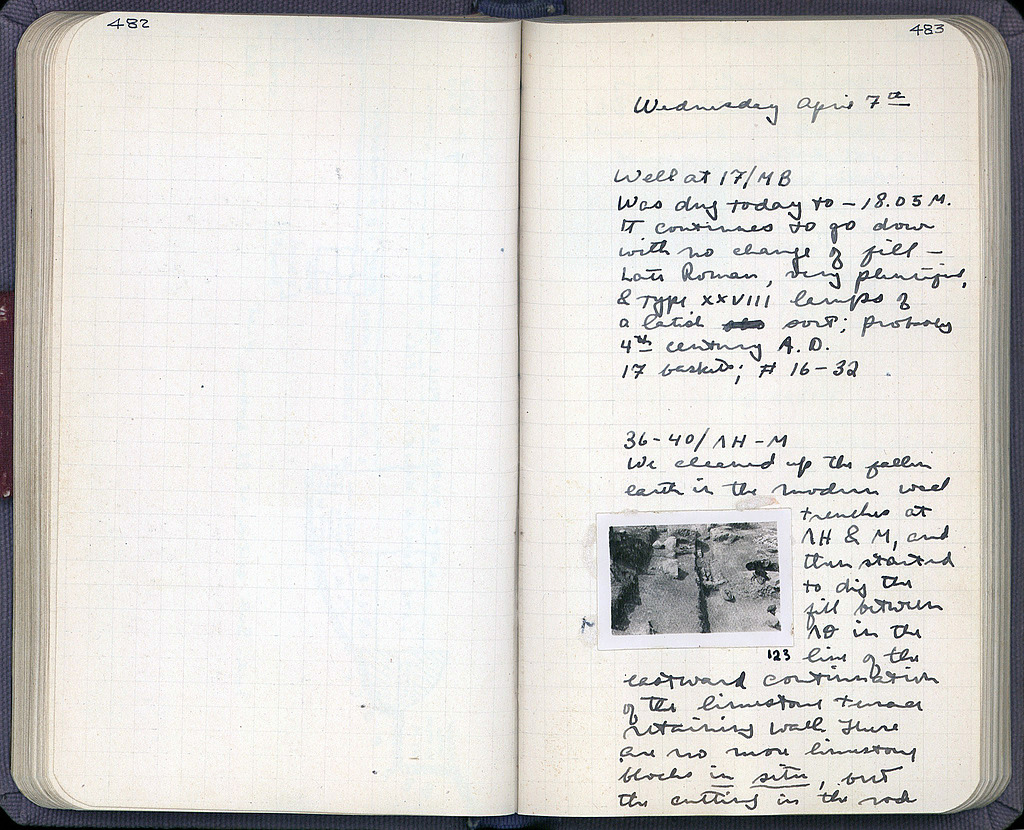 482
483
Wednesday April 7th
Well at 17/MB
Was dug today to – 18.05 M.
It continues to go down
with no change of fill –
Late Roman, very plentiful,
& Type XXVIII lamps of
a latish sort; probably
4th century A.D.
17 baskets; # 16–32
36–40/ΛH–M
We cleaned up the fallen
earth in the modern wall
trenches at
ΛH & M, and
then started
to dig the
fill between
ΛΘ in the
123
line of the
eastward continuation
of the limestone terrace
retaining wall. There
are no more limestone
blocks in situ, but
the cutting in the rock